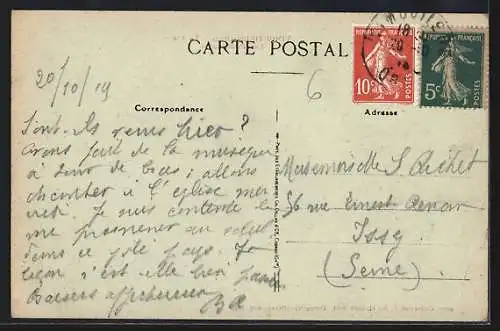 CARTE POSTALE
20/10/19
Correspondance
Adresse
RÉPUBLIQUE FRANÇAISE
10c
POSTES
5c
POSTES
6
Sont-ils venus hier ?
Avons fait de la musique
à tour de bras ; allons
chanter à l'église mer
Je suis contente de
me promener au soleil
dans ce joli pays. Ta
leçon s'est-elle bien passée
Baisers affectueux
Mademoiselle S. Richet
56 rue Ernest Renan
Issy
(Seine)